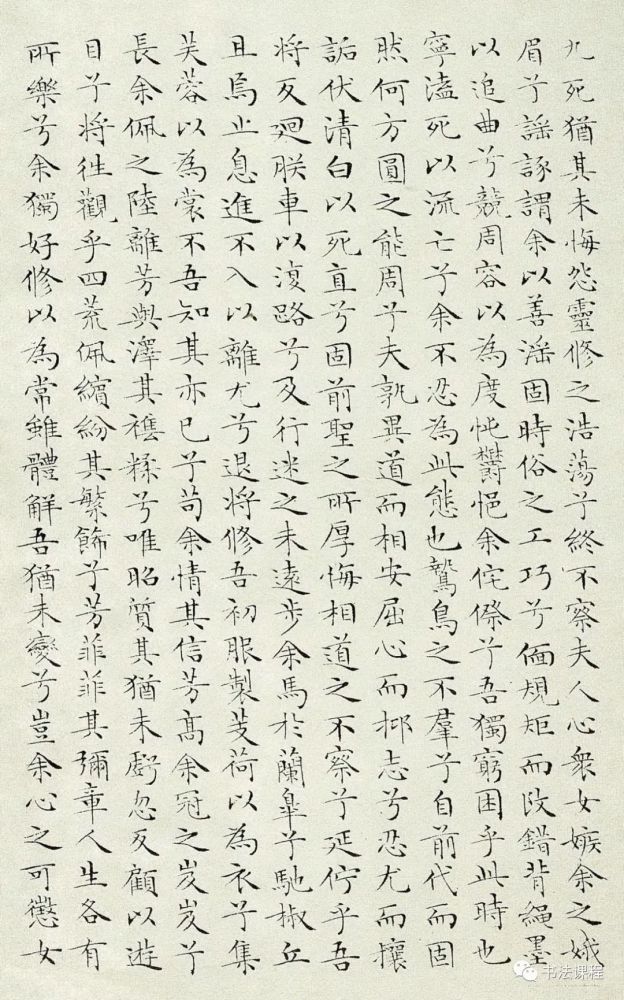 九死猶其未悔怨靈修之浩蕩兮終不察夫人心衆女嫉余之娥
眉兮謡諑謂余以善滛固時俗之工巧兮偭規矩而改錯背繩墨
以追曲兮競周容以為度忳欝悒余侘傺兮吾獨窮困乎此時也
寧溘死以流亡兮余不忍為此態也鷙鳥之不羣兮自前代而固
然何方圓之能周兮夫孰異道而相安屈心而抑志兮忍尤而攘
詬伏清白以死直兮固前聖之所厚悔相道之不察兮延佇乎吾
將反廻朕車以復路兮及行迷之未遠步余馬於蘭皐兮馳椒丘
且焉止息進不入以離尤兮退將修吾初服製芰荷以為衣兮集
芙蓉以為裳不吾知其亦已兮苟余情其信芳髙余冠之岌岌兮
長余佩之陸離芳與澤其襍糅兮唯昭質其猶未虧忽反顧以遊
目兮將往觀乎四荒佩繽紛其繁飾兮芳菲菲其彌章人生各有
所樂兮余獨好修以為常雖體解吾猶未變兮豈余心之可懲女
书法课程